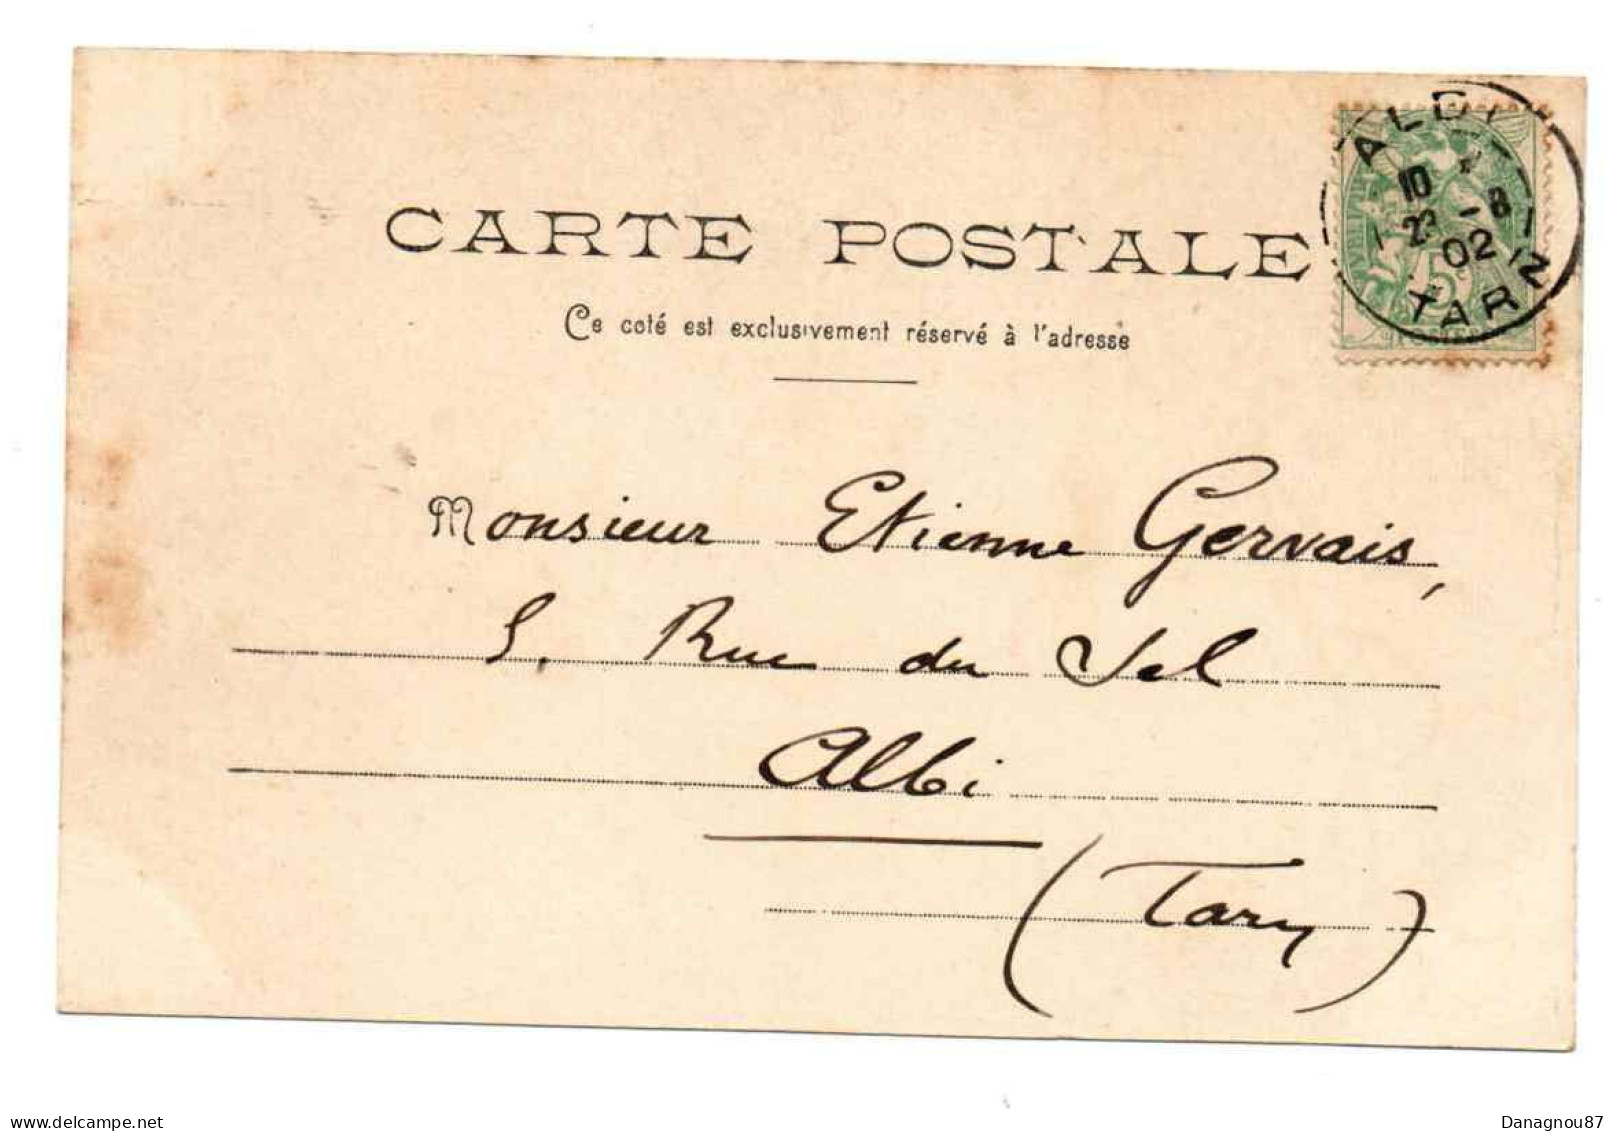 CARTE POSTALE
Ce coté est exclusivement réservé à l'adresse
ALBI
10
23 -8
02
TARN
5
POSTES
Monsieur Etienne Gervais,
5. Rue du Sel
Albi
(Tarn)
www.delcampe.net
Danagnou87